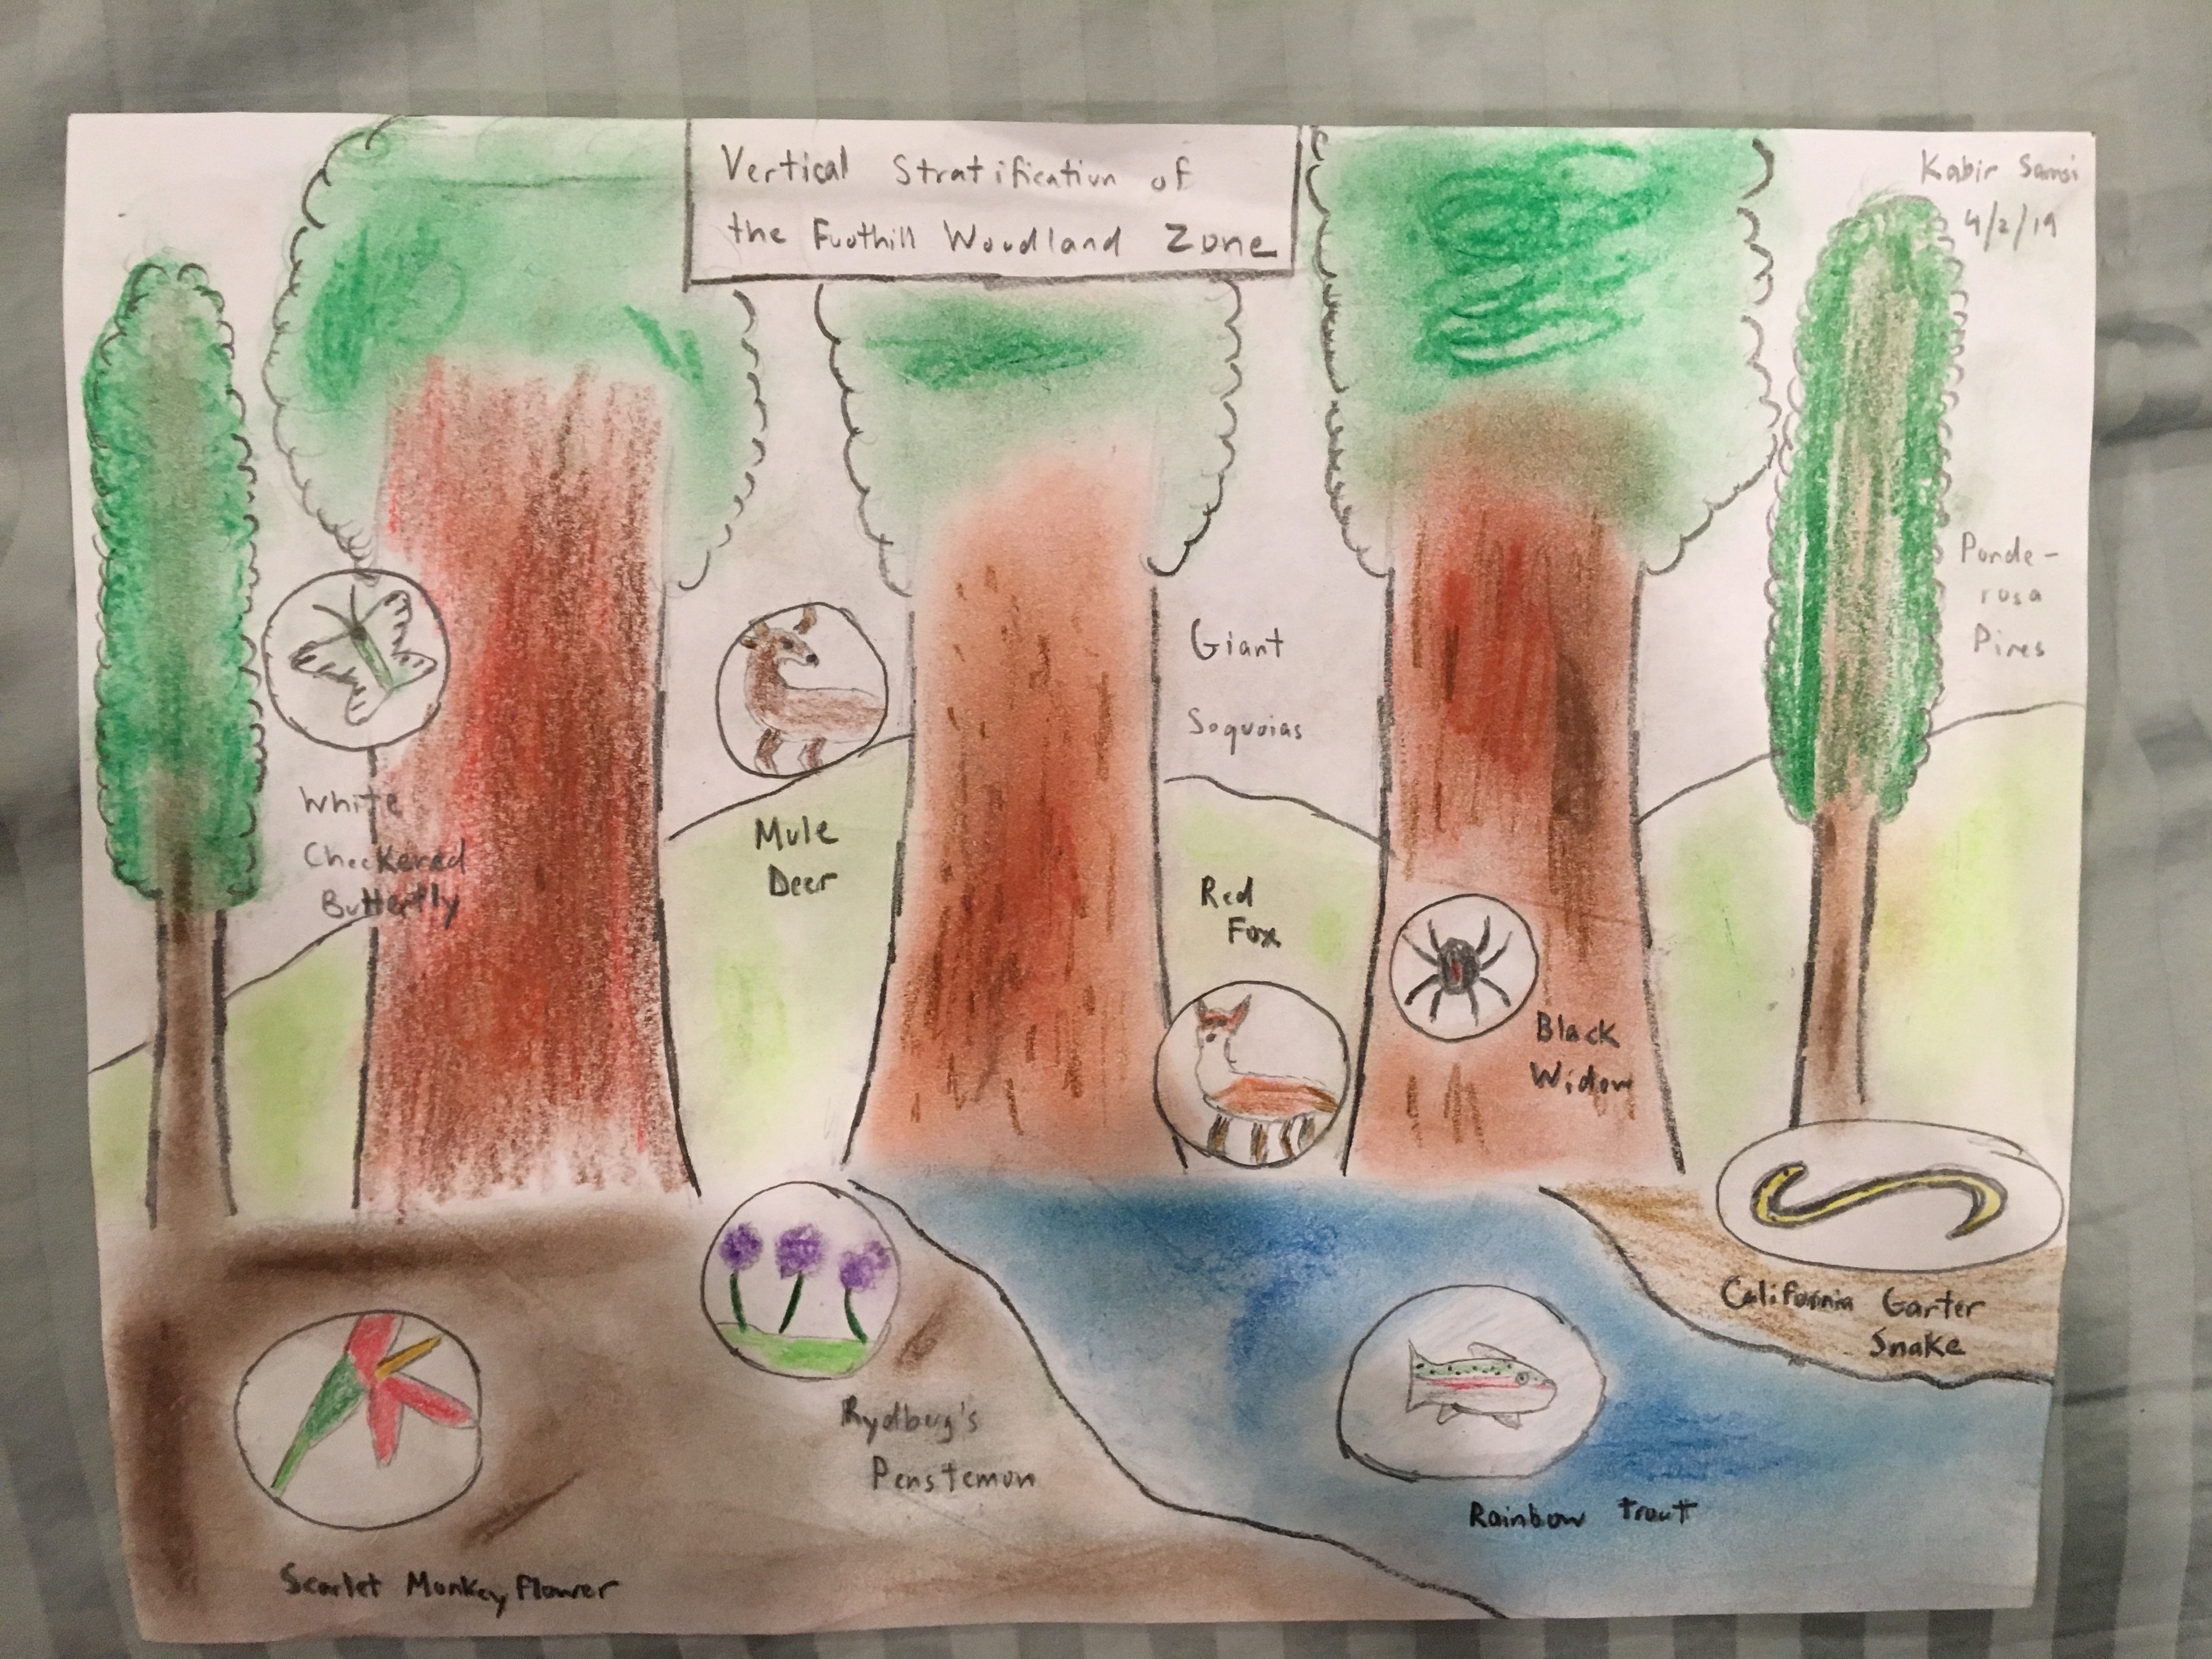 Vertical Stratification of
the Foothill Woodland Zone
Kabir Samsi
4/2/19
Ponde-
rosa
Pines
Giant
Sequoias
White
Checkered
Butterfly
Mule
Deer
Red
Fox
Black
Widow
California Garter
Snake
Rydberg's
Penstemon
Rainbow Trout
Scarlet Monkey Flower